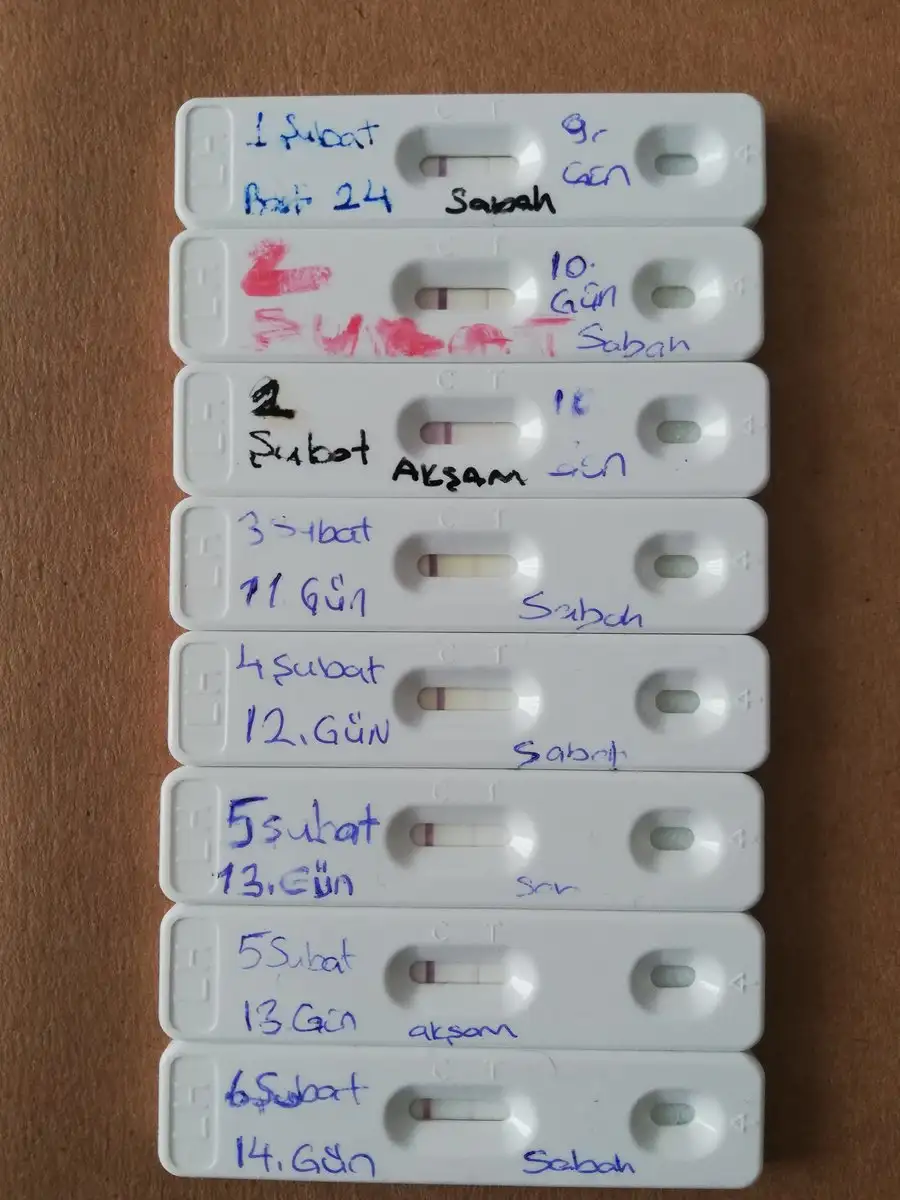 C T
1 Şubat
9.
Gün
24 Sabah
C T
2
10.
Gün
ŞUBAT
Sabah
C T
2
Şubat
Gün
AKŞAM
C T
3 Şubat
11. Gün
Sabah
C T
4 Şubat
12. GÜN
Sabah
C T
5 Şubat
13. Gün
C T
5 Şubat
13 Gün
akşam
C T
6 Şubat
14. Gün
Sabah